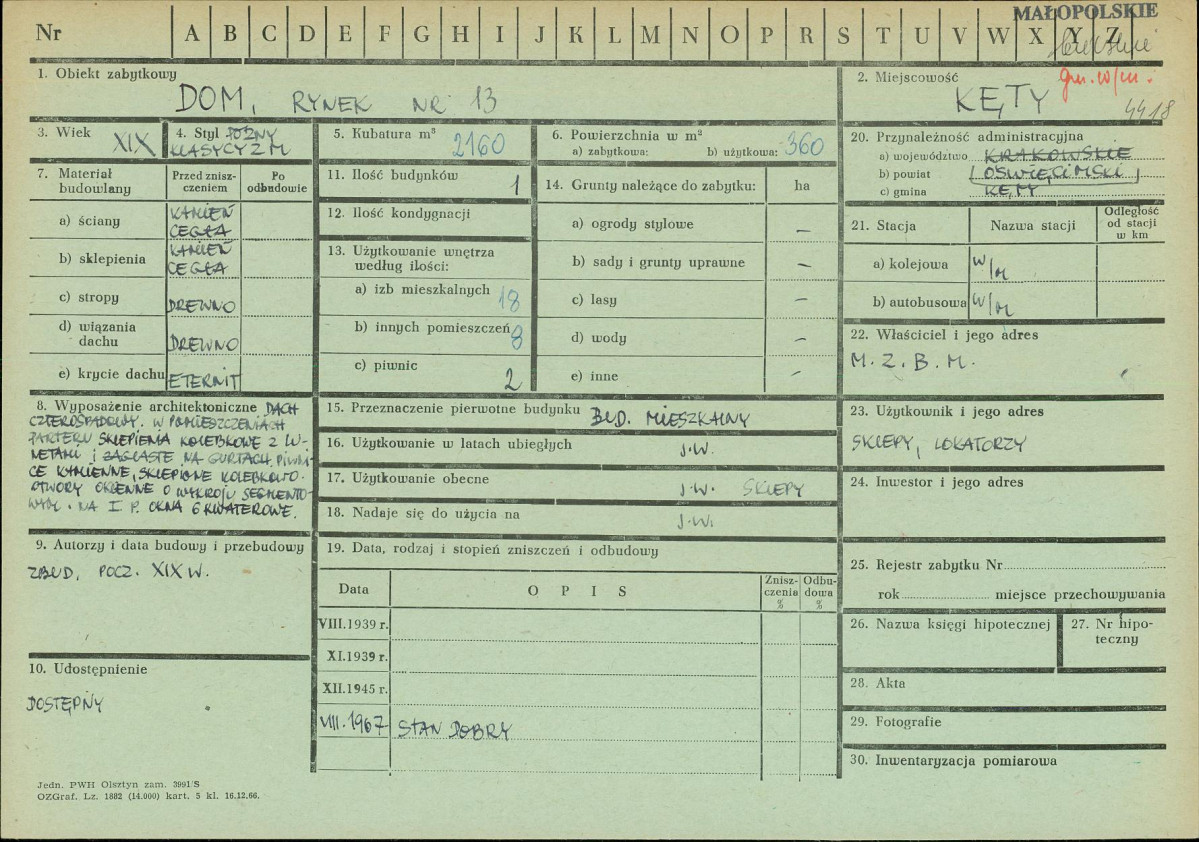 MAŁOPOLSKIE
Nr A B C D E F G H I J K L M N O P R S T U V W X Y Z
1. Obiekt zabytkowy
DOM, RYNEK NR 13
2. Miejscowość
gm. w/m.
KĘTY
4418
3. Wiek XIX
4. Styl PÓŹNY
KLASYCYZM
5. Kubatura m³
2160
6. Powierzchnia w m²
a) zabytkowa: b) użytkowa: 360
7. Materiał budowlany
Przed zniszczeniem
Po odbudowie
a) ściany KAMIEŃ
CEGŁA
b) sklepienia KAMIEŃ
CEGŁA
c) stropy DREWNO
d) wiązania dachu DREWNO
e) krycie dachu ETERNIT
11. Ilość budynków 1
12. Ilość kondygnacji
13. Użytkowanie wnętrza
według ilości:
a) izb mieszkalnych 18
b) innych pomieszczeń 8
c) piwnic 2
14. Grunty należące do zabytku: ha
a) ogrody stylowe –
b) sady i grunty uprawne –
c) lasy –
d) wody –
e) inne –
20. Przynależność administracyjna
a) województwo KRAKOWSKIE
b) powiat OŚWIĘCIMSKI
c) gmina KĘTY
21. Stacja Nazwa stacji Odległość od stacji w km
a) kolejowa W/M
b) autobusowa W/M
22. Właściciel i jego adres
M. Z. B. M.
8. Wyposażenie architektoniczne DACH
CZTEROSPADOWY. W POMIESZCZENIACH
PARTERU SKLEPIENIA KOLEBKOWE Z LU-
NETAMI i ŻAGLASTE NA GURTACH. PIWNI-
CE KAMIENNE, SKLEPIONE KOLEBKOWO.
OTWORY OKIENNE O WYKROJU SEGMENTO-
WYM. NA I P. OKNA 6 KWATEROWE.
15. Przeznaczenie pierwotne budynku BUD. MIESZKALNY
16. Użytkowanie w latach ubiegłych J.W.
17. Użytkowanie obecne J.W. SKLEPY
18. Nadaje się do użycia na J.W.
23. Użytkownik i jego adres
SKLEPY, LOKATORZY
24. Inwestor i jego adres
9. Autorzy i data budowy i przebudowy
ZBUD. POCZ. XIX W.
10. Udostępnienie
DOSTĘPNY
19. Data, rodzaj i stopień zniszczeń i odbudowy
Data OPIS Zniszczenia % Odbudowa %
VIII.1939 r.
XI.1939 r.
XII.1945 r.
VIII.1967 STAN DOBRY
25. Rejestr zabytku Nr
rok miejsce przechowywania
26. Nazwa księgi hipotecznej
27. Nr hipo-
teczny
28. Akta
29. Fotografie
30. Inwentaryzacja pomiarowa
Jedn. PWH Olsztyn zam. 3991/S
OZGraf. Lz. 1882 (14.000) kart. 5 kl. 16.12.66.